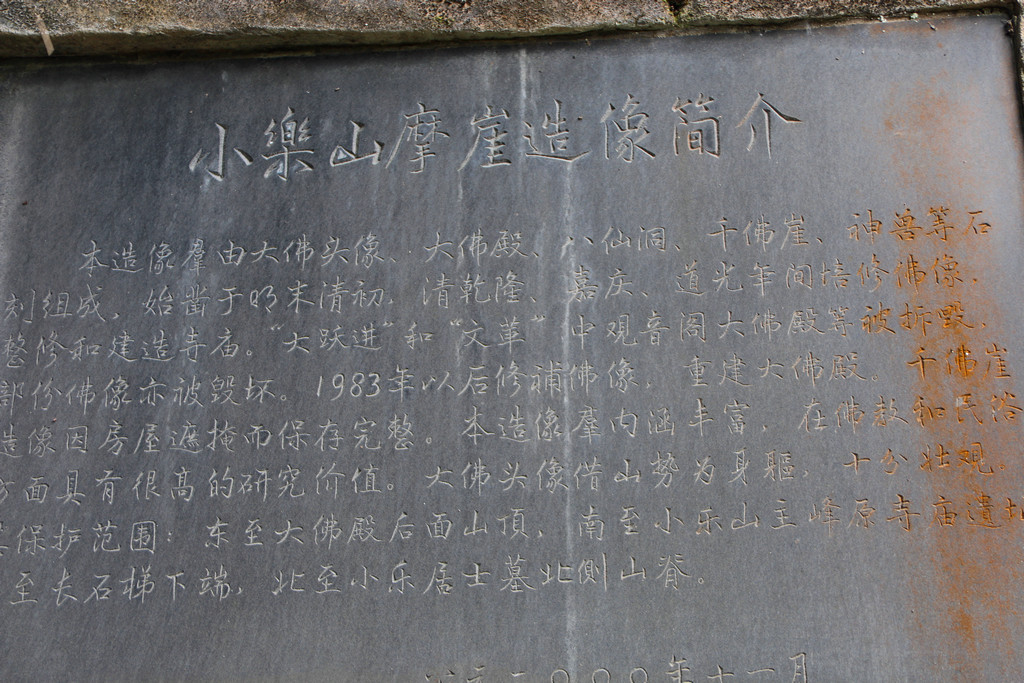 小樂山摩崖造像简介
本造像羣由大佛头像、大佛殿、八仙洞、千佛崖、神兽等石
刻组成，始凿于明末清初，清乾隆、嘉庆、道光年间培修佛像，
整修和建造寺庙。“大跃进”和“文革”中观音阁大佛殿等被拆毁，
部份佛像亦被毁坏。1983年以后修補佛像，重建大佛殿。千佛崖
造像因房屋遮掩而保存完整。本造像羣内涵丰富，在佛教和民俗
方面具有很高的研究价值。大佛头像借山势为身軀，十分壮观。
保护范围：东至大佛殿后面山頂，南至小乐山主峰原寺庙遺址
至长石梯下端，北至小乐居士墓北侧山脊。
二〇〇〇年十一月